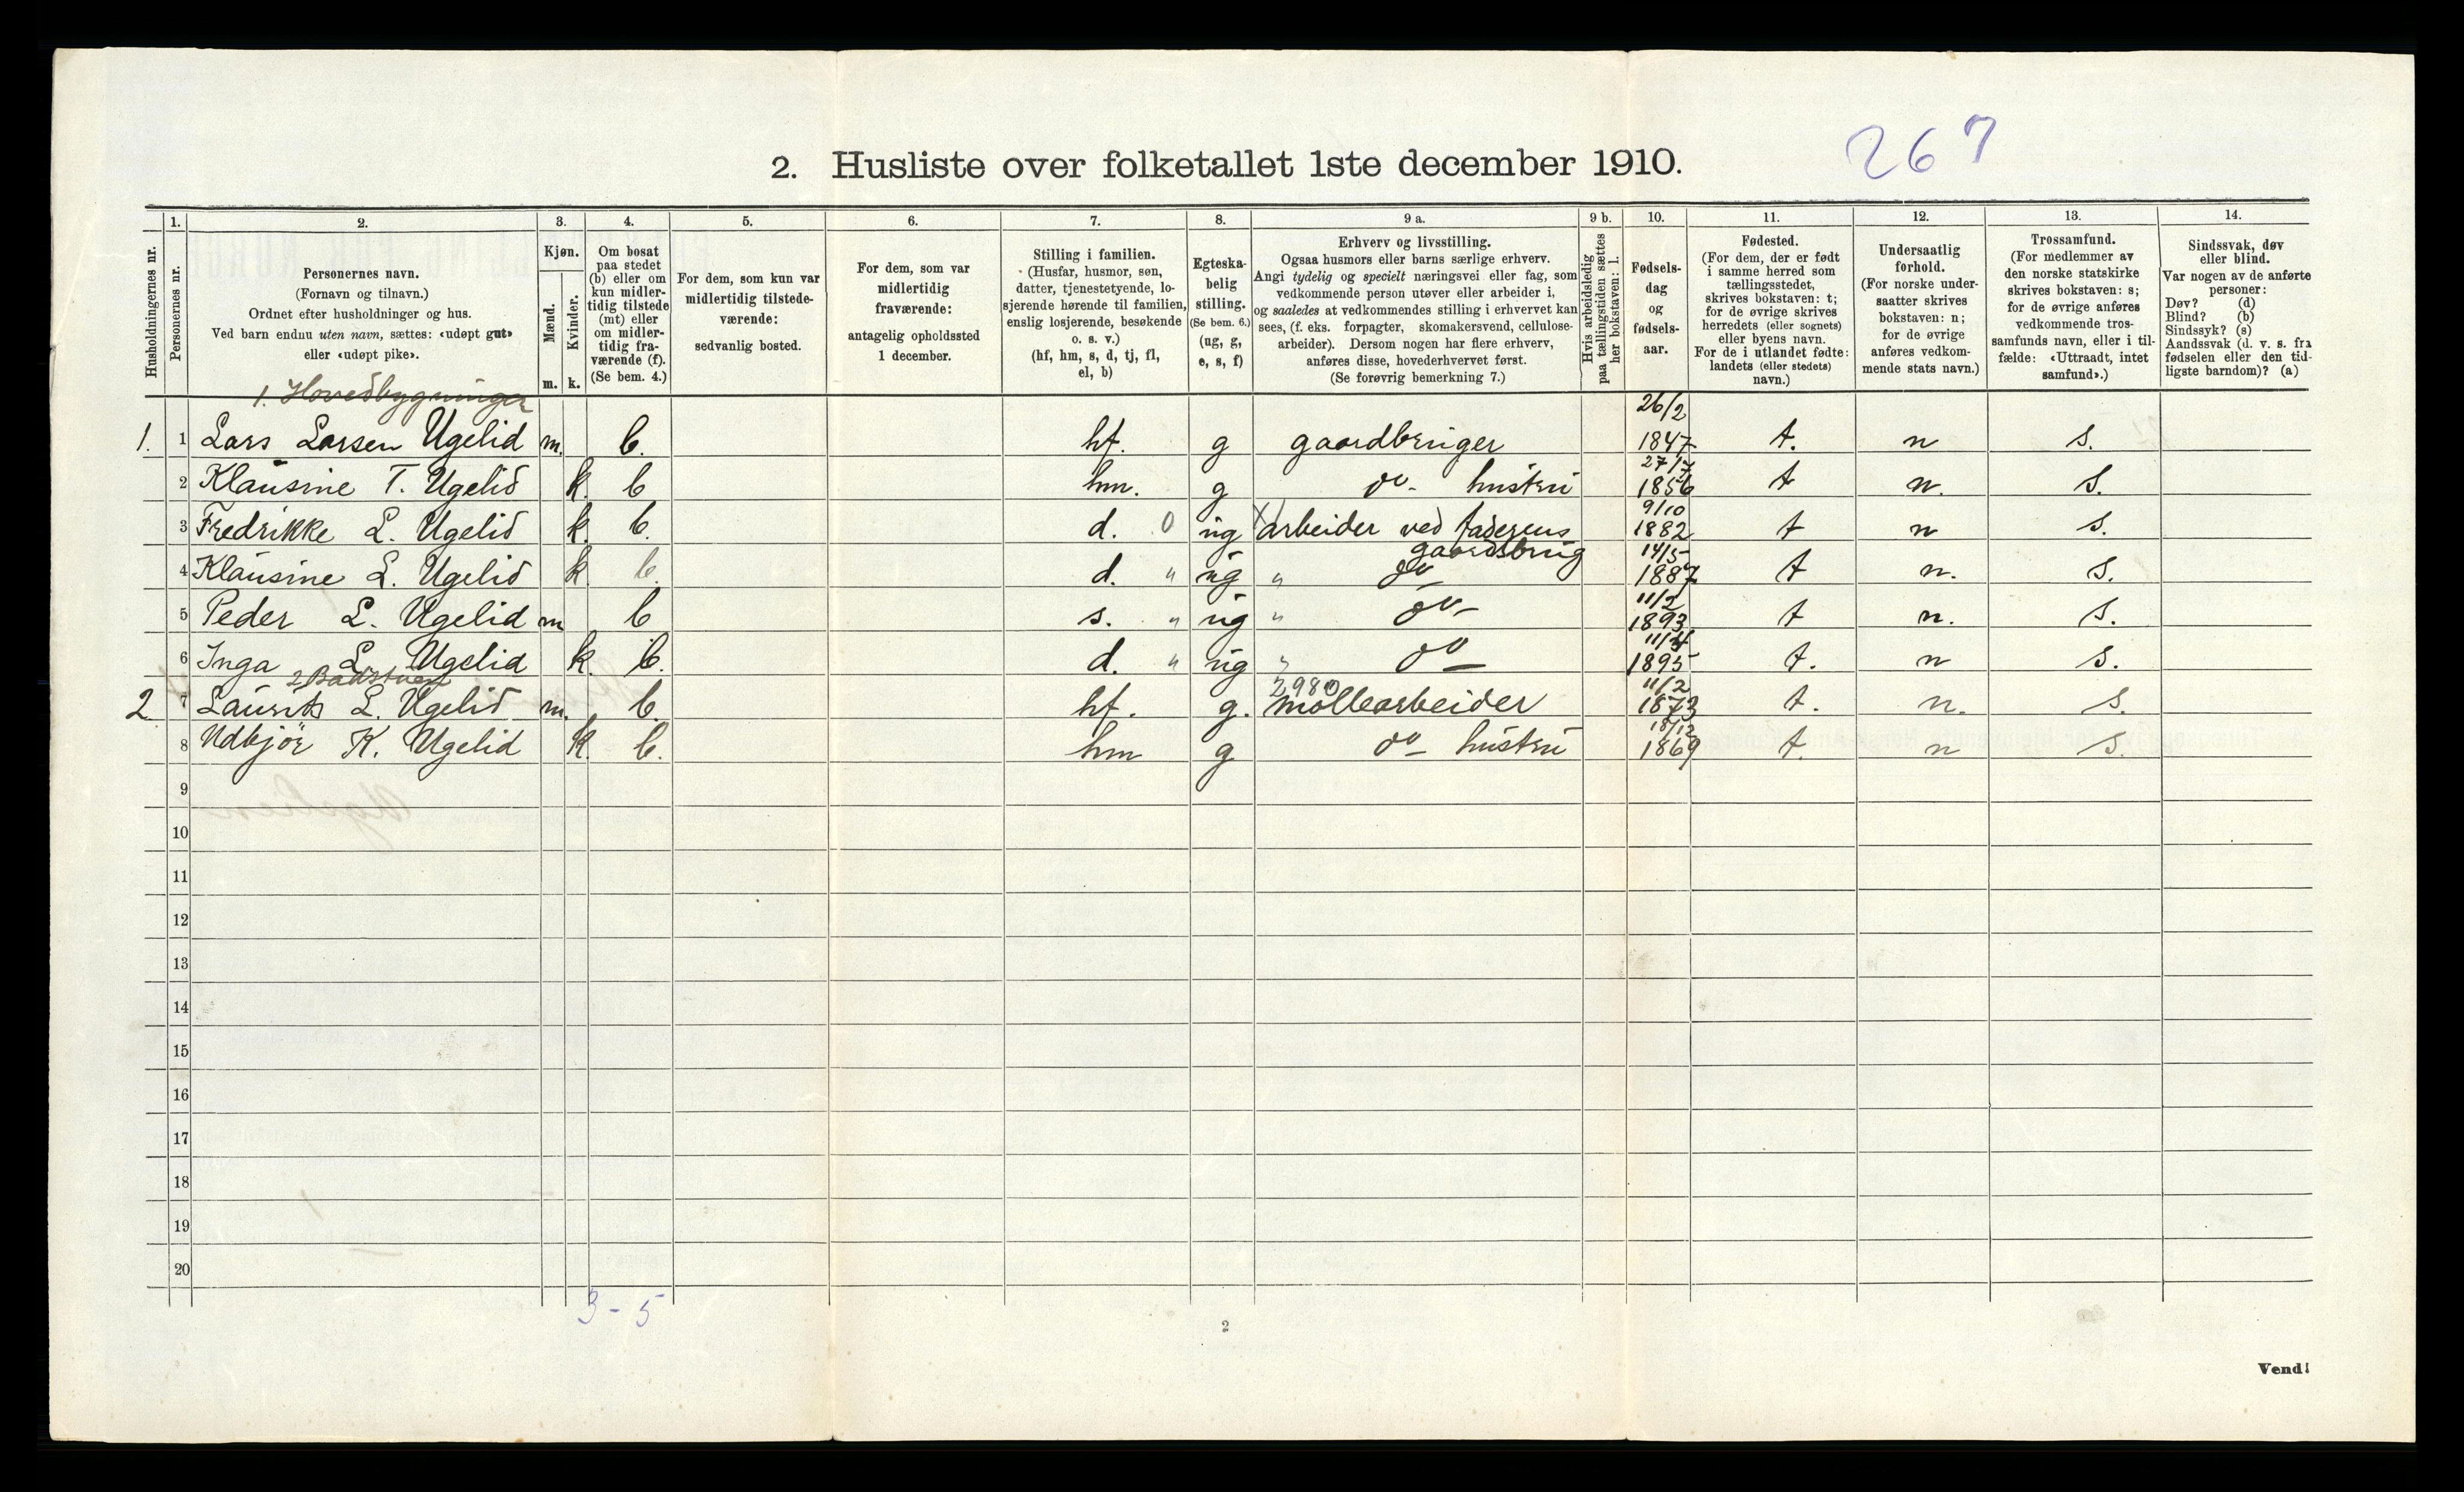 267
2. Husliste over folketallet 1ste december 1910.
Husholdningernes nr.
1.
Personernes nr.
2.
Personernes navn.
(Fornavn og tilnavn.)
Ordnet efter husholdninger og hus.
Ved barn endnu uten navn, sættes: «udøpt gut»
eller «udøpt pike».
3.
Kjøn.
Mænd.
Kvinder.
m. k.
4.
Om bosat
paa stedet
(b) eller om
kun midler-
tidig tilstede
(mt) eller
om midler-
tidig fra-
værende (f).
(Se bem. 4.)
5.
For dem, som kun var
midlertidig tilstede-
værende:
sedvanlig bosted.
6.
For dem, som var
midlertidig
fraværende:
antagelig opholdssted
1 december.
7.
Stilling i familien.
(Husfar, husmor, søn,
datter, tjenestetyende, lo-
sjerende hørende til familien,
enslig losjerende, besøkende
o. s. v.)
(hf, hm, s, d, tj, fl,
el, b)
8.
Egteska-
belig
stilling.
(Se bem. 6.)
(ug, g,
e, s, f)
9 a.
Erhverv og livsstilling.
Ogsaa husmors eller barns særlige erhverv.
Angi tydelig og specielt næringsvei eller fag, som
vedkommende person utøver eller arbeider i,
og saaledes at vedkommendes stilling i erhvervet kan
sees, (f. eks. forpagter, skomakersvend, cellulose-
arbeider). Dersom nogen har flere erhverv,
anføres disse, hovederhvervet først.
(Se forøvrig bemerkning 7.)
9 b.
Hvis arbeidsledig
paa tællingstiden sættes
her bokstaven: l.
10.
Fødsels-
dag
og
fødsels-
aar.
11.
Fødested.
(For dem, der er født
i samme herred som
tællingsstedet,
skrives bokstaven: t;
for de øvrige skrives
herredets (eller sognets)
eller byens navn.
For de i utlandet fødte:
landets (eller stedets)
navn.)
12.
Undersaatlig
forhold.
(For norske under-
saatter skrives
bokstaven: n;
for de øvrige
anføres vedkom-
mende stats navn.)
13.
Trossamfund.
(For medlemmer av
den norske statskirke
skrives bokstaven: s;
for de øvrige anføres
vedkommende tros-
samfunds navn, eller i til-
fælde: «Uttraadt, intet
samfund».)
14.
Sindssvak, døv
eller blind.
Var nogen av de anførte
personer:
Døv? (d)
Blind? (b)
Sindssyk? (s)
Aandssvak (d. v. s. fra
fødselen eller den tid-
ligste barndom)? (a)
1. Hovedbygninger
1. 1 Lars Larsen Ugelid m. b. hf. g gaardbruger 26/2 1847 t. n s.
2 Klausine T. Ugelid k. b hm. g do- hustru 27/7 1856 t n. s.
3 Fredrikke L. Ugelid k. b. d. 0 ug arbeider ved faderens gaardsbrug 9/10 1882 t n s.
4 Klausine L. Ugelid k. b. d. " ug " do 14/5 1887 t n. s.
5 Peder L. Ugelid m b s. " ug " do- 11/2 1893 t n. s.
6 Inga L. Ugelid k. b. d. " ug " do 11/4 1895 t. n s.
2 Badstuen
2 7 Laurits L. Ugelid m. b. hf. g. 2980 møllearbeider 11/2 1873 t. n. s.
8 Udbjør K. Ugelid k. b. hm g do- hustru 18/12 1869 t. n s.
9
10
11
12
13
14
15
16
17
18
19
20
3 - 5
2
Vend!